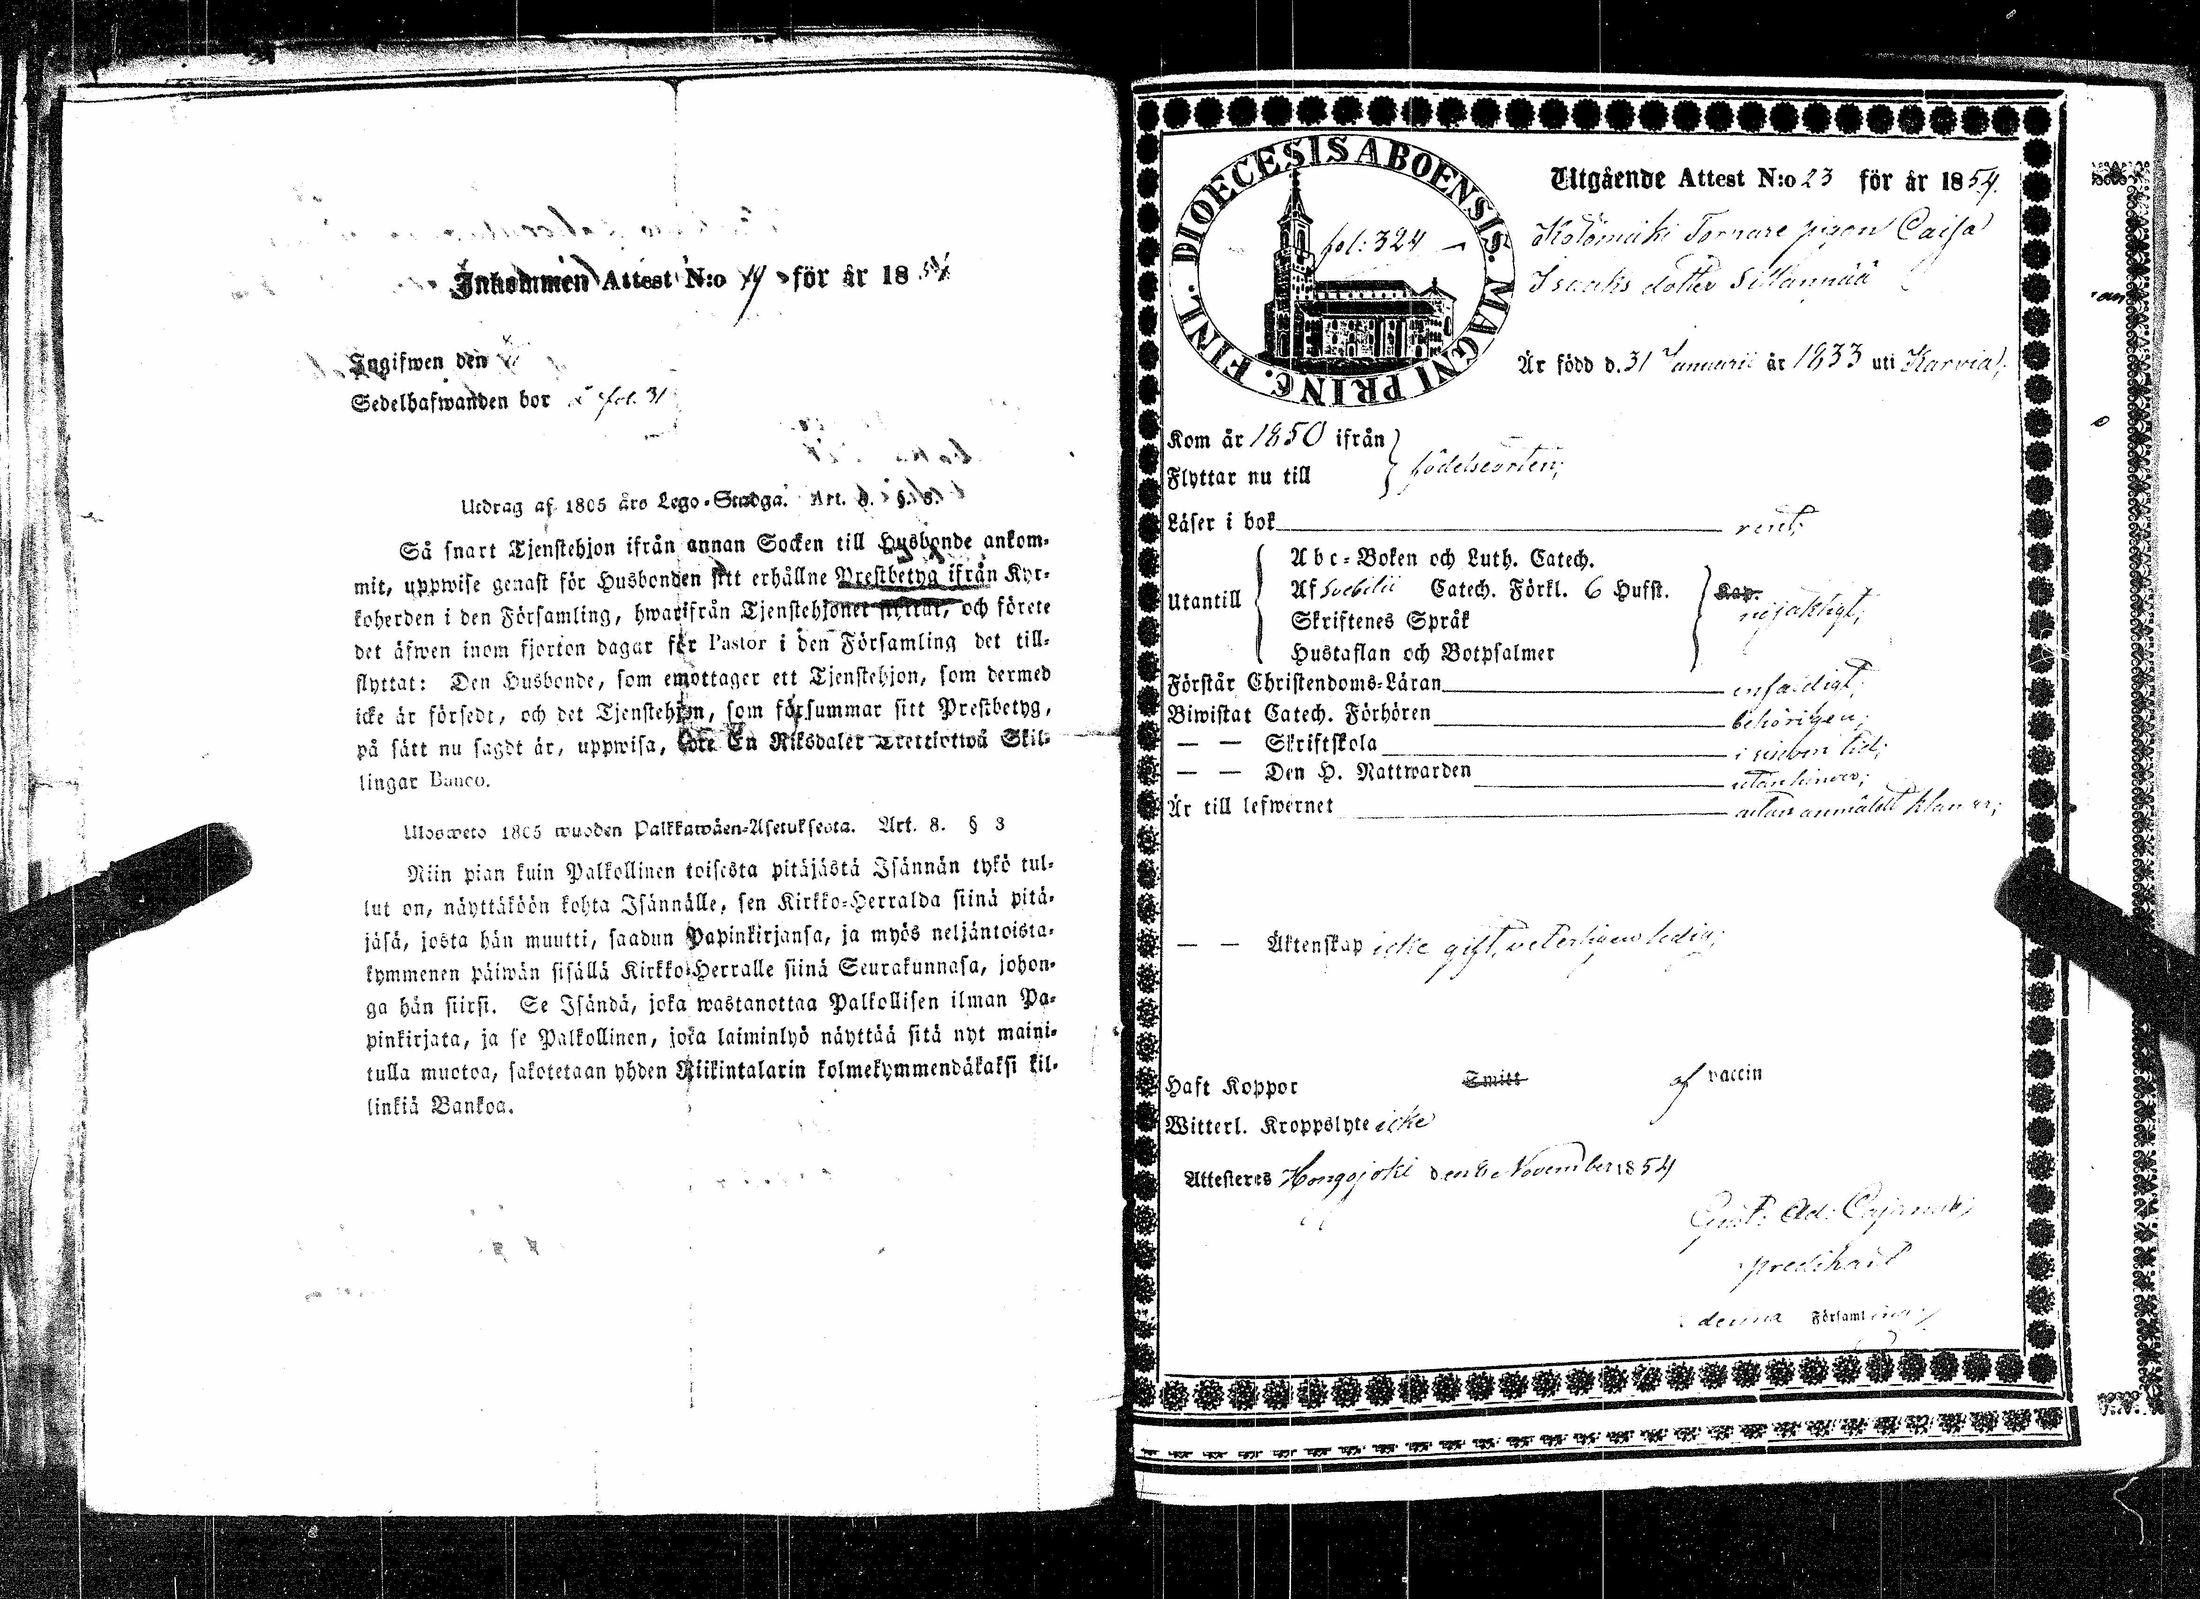 Inkommen Attest N:o 19 för år 1854
Ingifwen den
Sedelhafwanden bor fol. 31
Utdrag af 1805 års Lego-Stadga. Art. 8. §. 3.
Så snart Tjenstehjon ifrån annan Socken till Husbonde ankom-
mit, uppwise genast för Husbonden sitt erhållne Prestbetyg ifrån Kyr-
koherden i den Församling, hwarifrån Tjenstehjonet flyttat, och förete
det äfwen inom fjorton dagar för Pastor i den Församling det till-
flyttat: Den Husbonde, som emottager ett Tjenstehjon, som dermed
icke är försedt, och det Tjenstehjon, som försummar sitt Prestbetyg,
på sätt nu sagdt är, uppwisa, böte En Riksdaler Trettiotwå Skil-
lingar Banco.
Ulosweto 1805 wuoden Palkkawäen-Asetuksesta. Art. 8. § 3
Niin pian kuin Palkollinen toisesta pitäjästä Isännän tykö tul-
lut on, näyttäköön kohta Isännälle, sen Kirkko-Herralda siinä pitä-
jäsä, josta hän muutti, saadun Papinkirjansa, ja myös neljäntoista-
kymmenen päiwän sisällä Kirkko-Herralle siinä Seurakunnasa, johon-
ga hän siirsi. Se Isändä, joka wastanottaa Palkollisen ilman Pa-
pinkirjata, ja se Palkollinen, joka laiminlyö näyttää sitä nyt maini-
tulla muotoa, sakotetaan yhden Riikintalarin kolmekymmendäkaksi kil-
linkiä Bankoa.
DIOECESIS ABOENSIS. MAGNI PRINC. FINL.
fol: 324
Utgående Attest N:o 23 för år 1854.
Kolomäki Tornare pigan Caisa
Isaaks dotter Sillanpää
Är född d. 31 Januarii år 1833 uti Karvia;
Kom år 1850 ifrån
Flyttar nu till födelseorten;
Läser i bok rent;
Utantill
Abc-Boken och Luth. Catech.
Af Svebilii Catech. Förkl. 6 Hufst. Kap.
Skriftenes Språk
Hustaflan och Botpsalmer
nöjaktigt;
Förstår Christendoms-Läran enfaldigt;
Biwistat Catech. Förhören behörigen;
— — Skriftskola i sinom tid;
— — Den H. Nattwarden utan hinder;
Är till lefwernet utan anmäldt klander;
— — Äktenskap icke gift, veterligen ledig;
Haft Koppor Smitt af vaccin
Witterl. Kroppslyte icke
Attesteras Hongojoki den November 1854
Gust: Ad: Cajanus;
predikant
denna Församling;